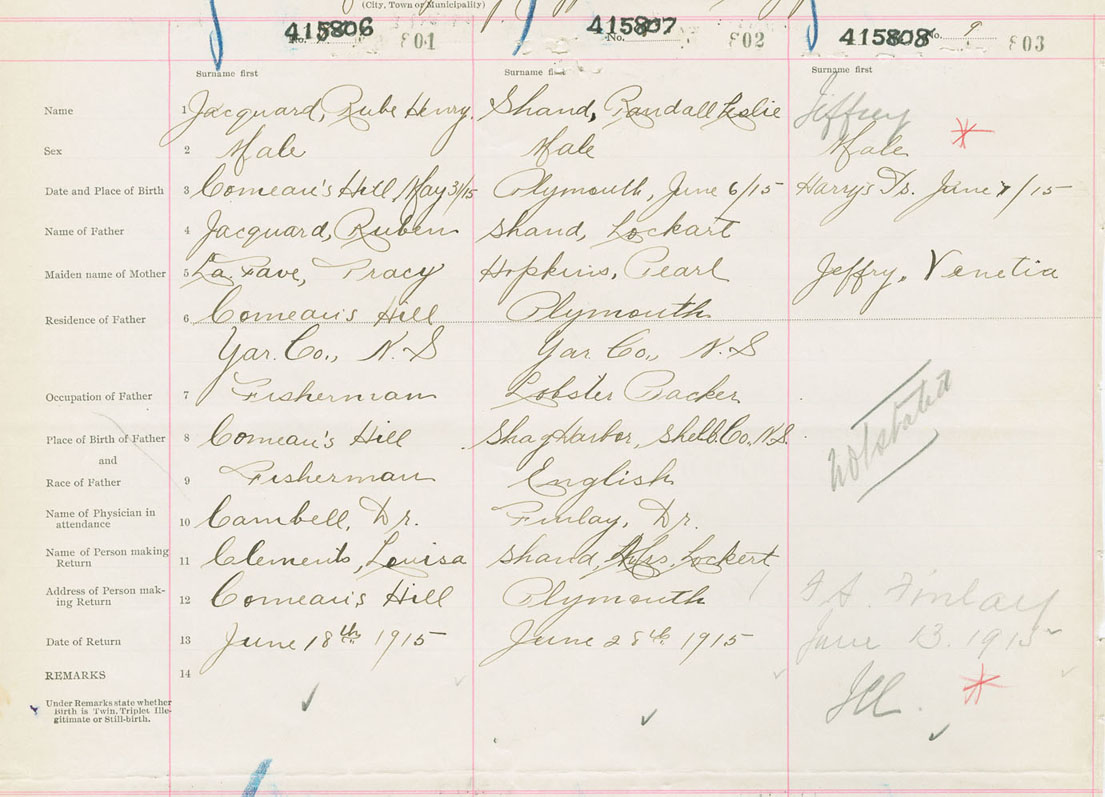 (City, Town or Municipality)
415806 801 415807 No. 802 415808 No. 9 803
Surname first Surname first Surname first
Name 1 Jacquard, Rube Henry. Shand, Randall Leslie Jeffrey
Sex 2 Male Male Male
Date and Place of Birth 3 Comeau's Hill, May 3/15 Plymouth, June 6/15 Harry's Is. June 7/15
Name of Father 4 Jacquard, Ruben Shand, Lockart
Maiden name of Mother 5 La Fave, Tracy Hopkins, Pearl Jeffry, Venetia
Residence of Father 6 Comeau's Hill Plymouth
Yar. Co., N.S Yar. Co., N.S
Occupation of Father 7 Fisherman Lobster Packer
Place of Birth of Father 8 Comeau's Hill Shag Harbor, Shelb. Co., N.S.
and
Race of Father 9 Fisherman English
not stated
Name of Physician in
attendance 10 Cambell, Dr. Finlay, Dr.
Name of Person making
Return 11 Clements, Louisa Shand, Mrs, Lockert
Address of Person mak-
ing Return 12 Comeau's Hill Plymouth Finlay
Date of Return 13 June 18th 1915 June 28th 1915 June 13. 1915
REMARKS 14
Under Remarks state whether
Birth is Twin, Triplet Ille-
gitimate or Still-birth.
Ill.